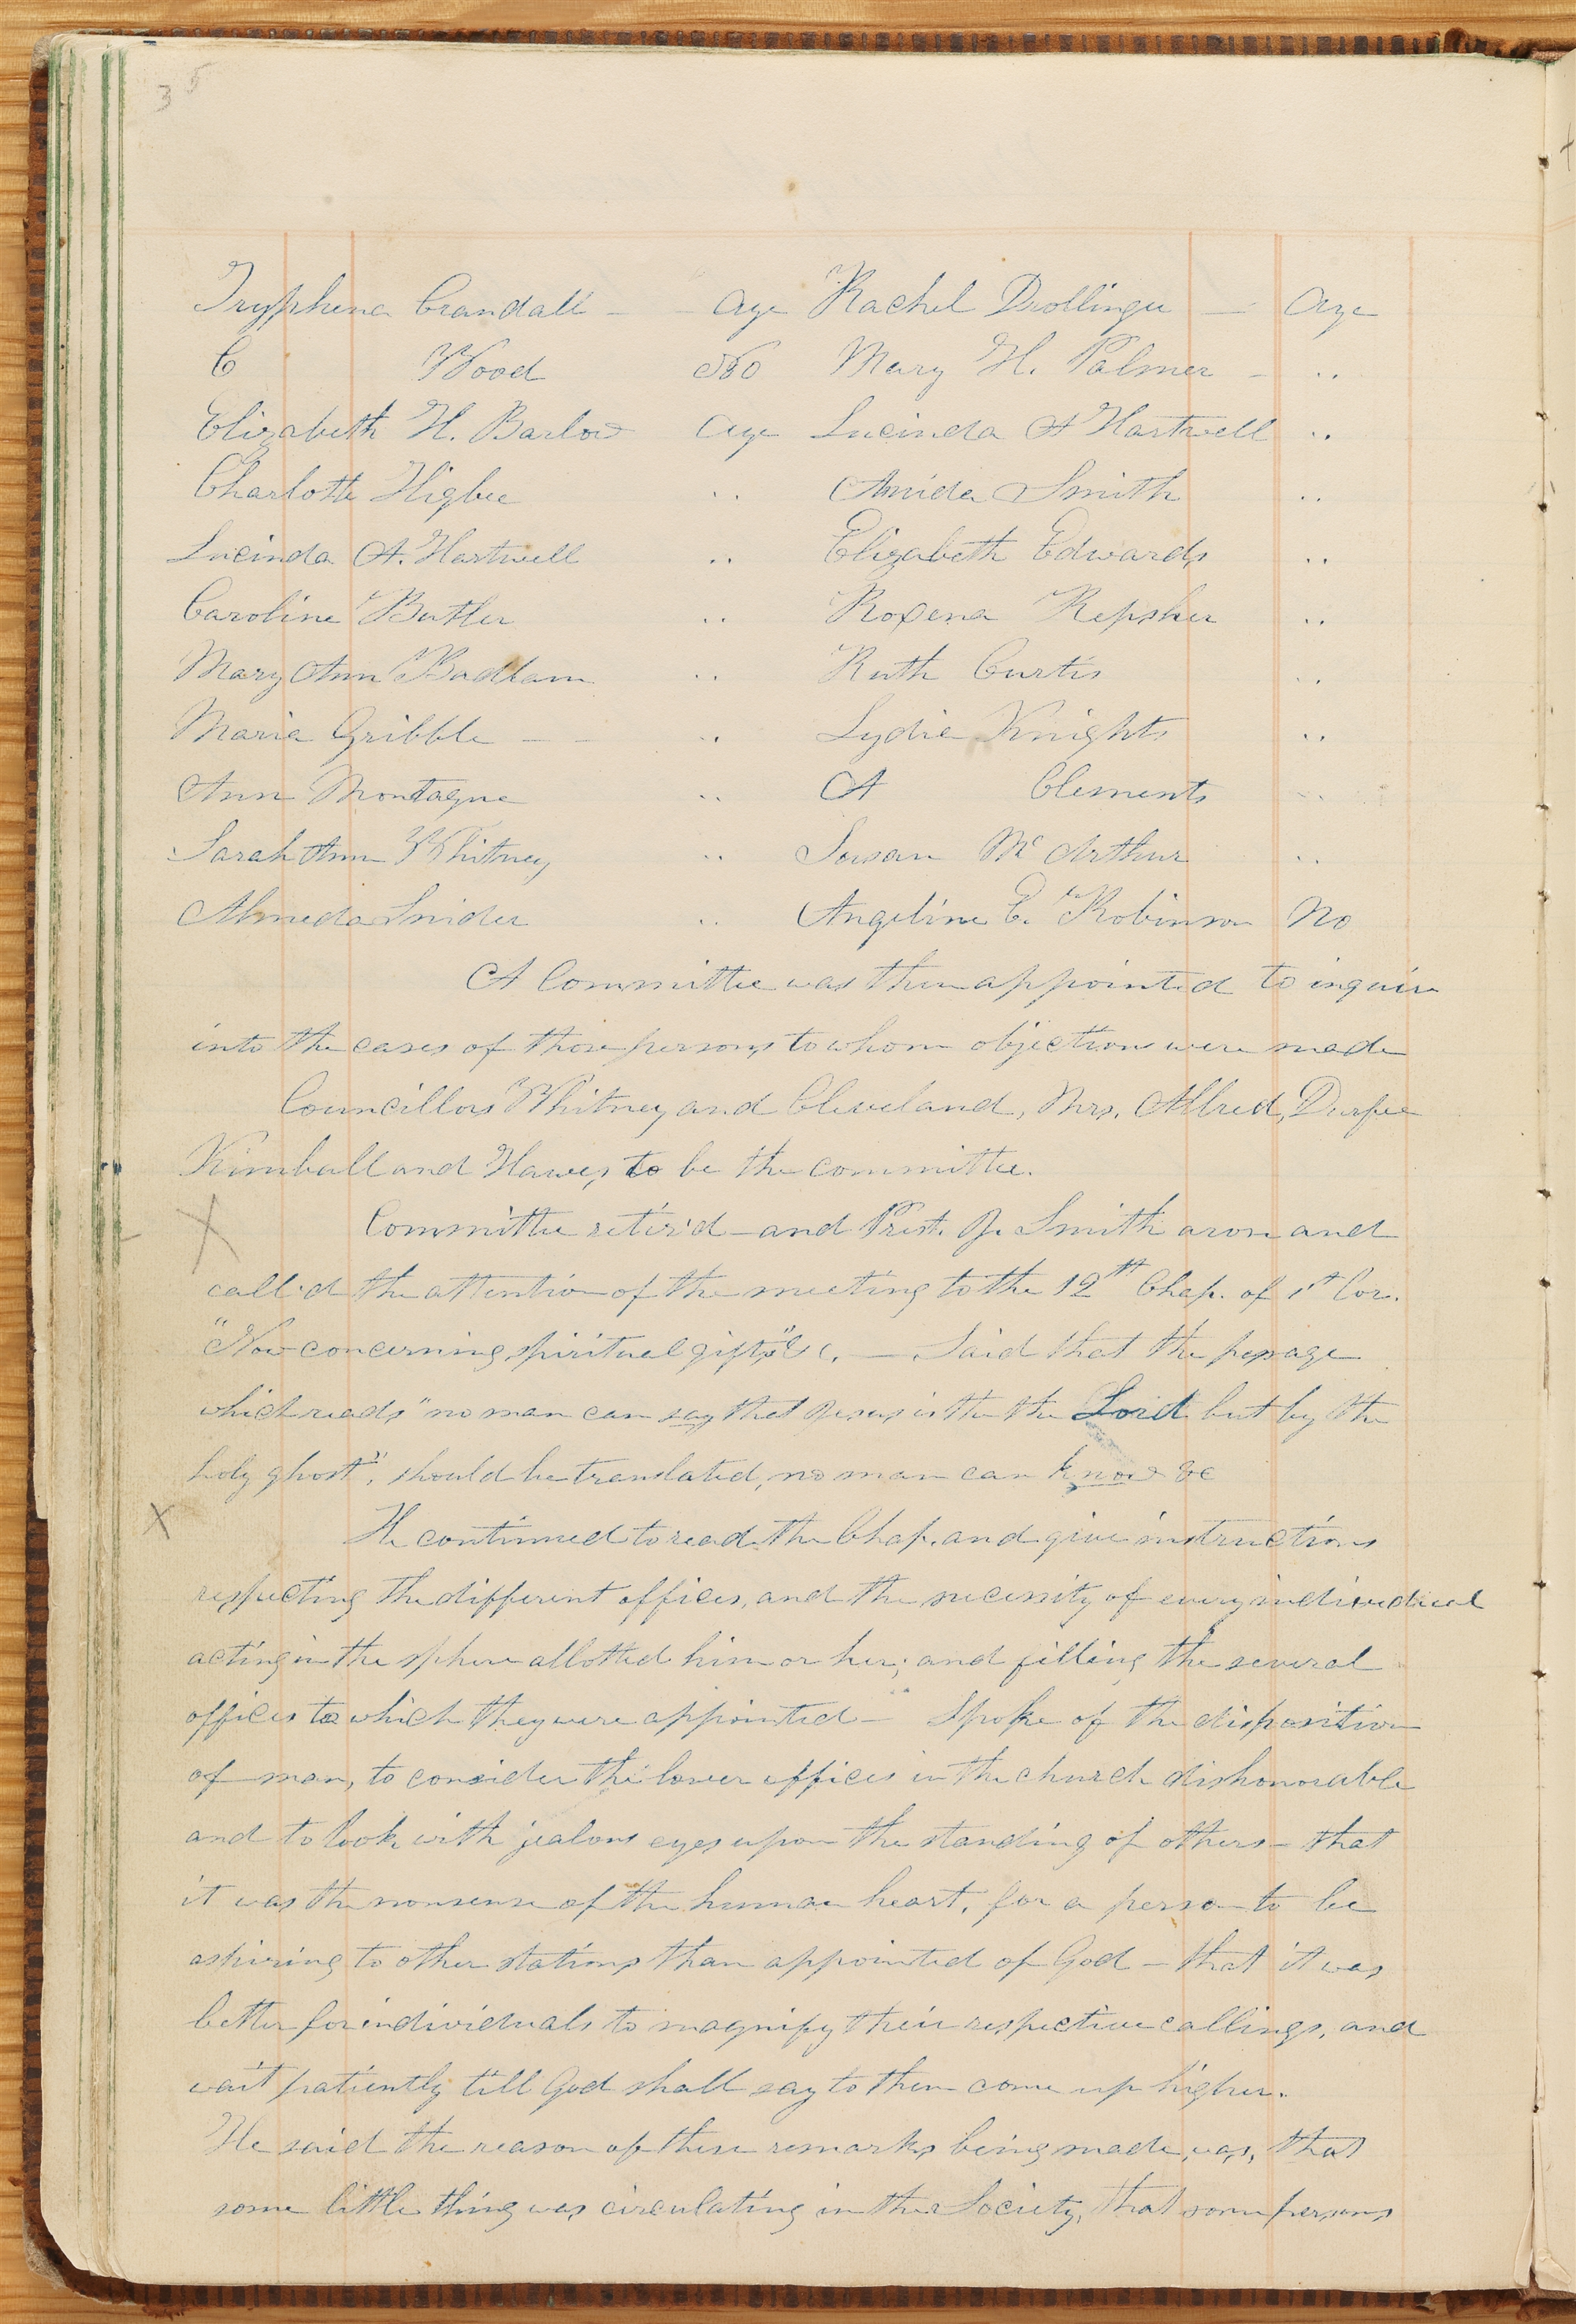 35
Tryphena Crandall - - Aye Rachel Drollinger - Aye
C Wood No Mary H. Palmer - "
Elizabeth H. Barlow Aye Lucinda A Hartwell "
Charlotte Higbee " Amida Smith "
Lucinda A. Hartwell " Elizabeth Edwards "
Caroline Butler " Roxena Repsher "
Mary Ann Badlam " Ruth Curtis "
Maria Gribble - - " Lydia Knights "
Ann Montague " A Clements "
Sarah Ann Whitney " Susan Mc Arthur "
Almeda Snider " Angeline E. Robinson No
A Committee was then appointed to inquire
into the cases of those persons to whom objections were made
Councillors Whitney and Cleveland, Mrs. Allred, Durfee
Kimball and Hawes to be the committee.
X Committee retir'd - and Prest. J. Smith arose and
call'd the attention of the meeting to the 12th Chap. of 1st Cor.
"Now concerning spiritual gifts" &c. — Said that the passage
which reads "no man can say that Jesus is the the Lord but by the
holy ghost", should be translated, no man can know &c
X He continued to read the Chap. and give instructions
respecting the different offices, and the necessity of every individual
acting in the sphere allotted him or her; and filling the several
offices to which they were appointed - Spoke of the disposition
of man, to consider the lower offices in the church dishonorable
and to look with jealous eyes upon the standing of others - that
it was the nonsense of the human heart, for a person to be
aspiring to other stations than appointed of God - that it was
better for individuals to magnify their respective callings, and
wait patiently till God shall say to them come up higher.
He said the reason of these remarks being made, was, that
some little thing was circulating in the Society, that some persons